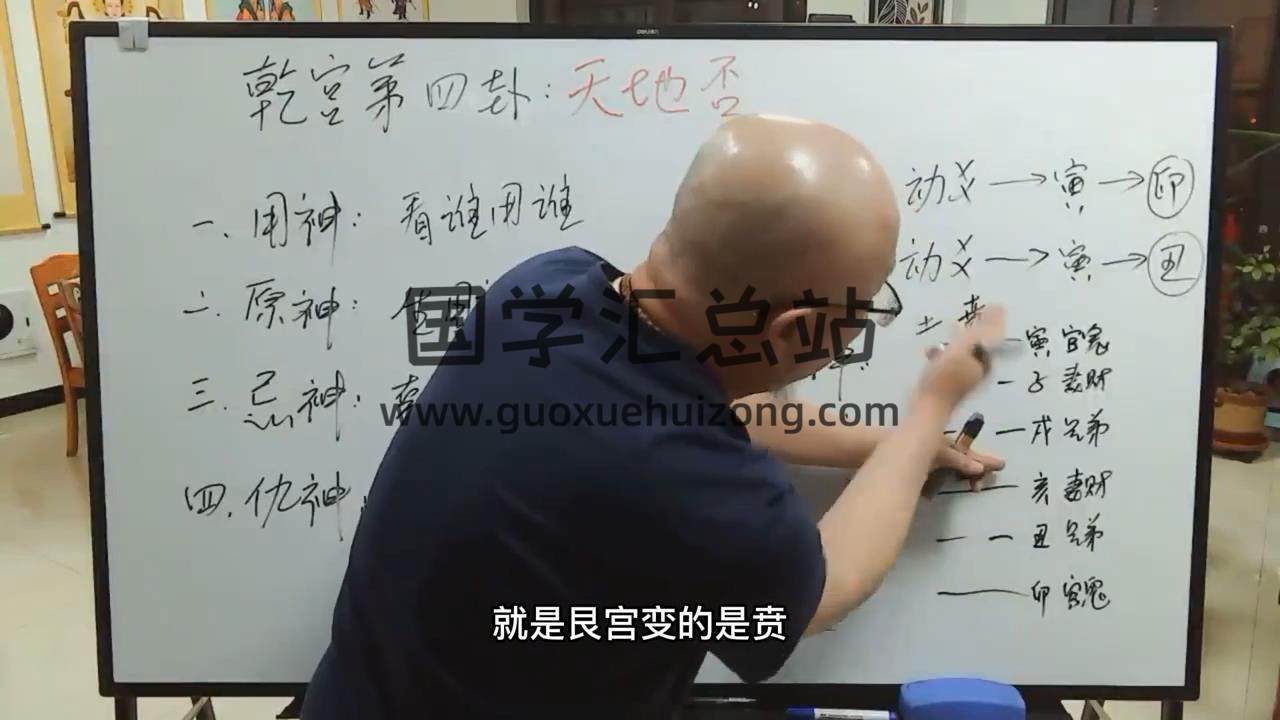 乾宫第四卦:天地否
一、用神:看谁用谁
二、原神:
三、忌神:
四、仇神:
动爻→寅→卯
动爻→寅→丑
土 贲
寅 官鬼
子 妻财
戌 兄弟
亥 妻财
丑 兄弟
卯 官鬼
国学汇总站
www.guoxuehuizong.com
就是艮宫变的是贲